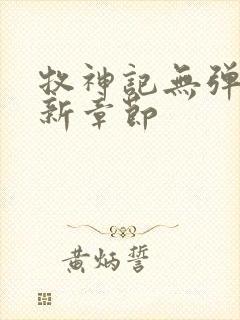 牧神記無弹
新章節
黄炳誓